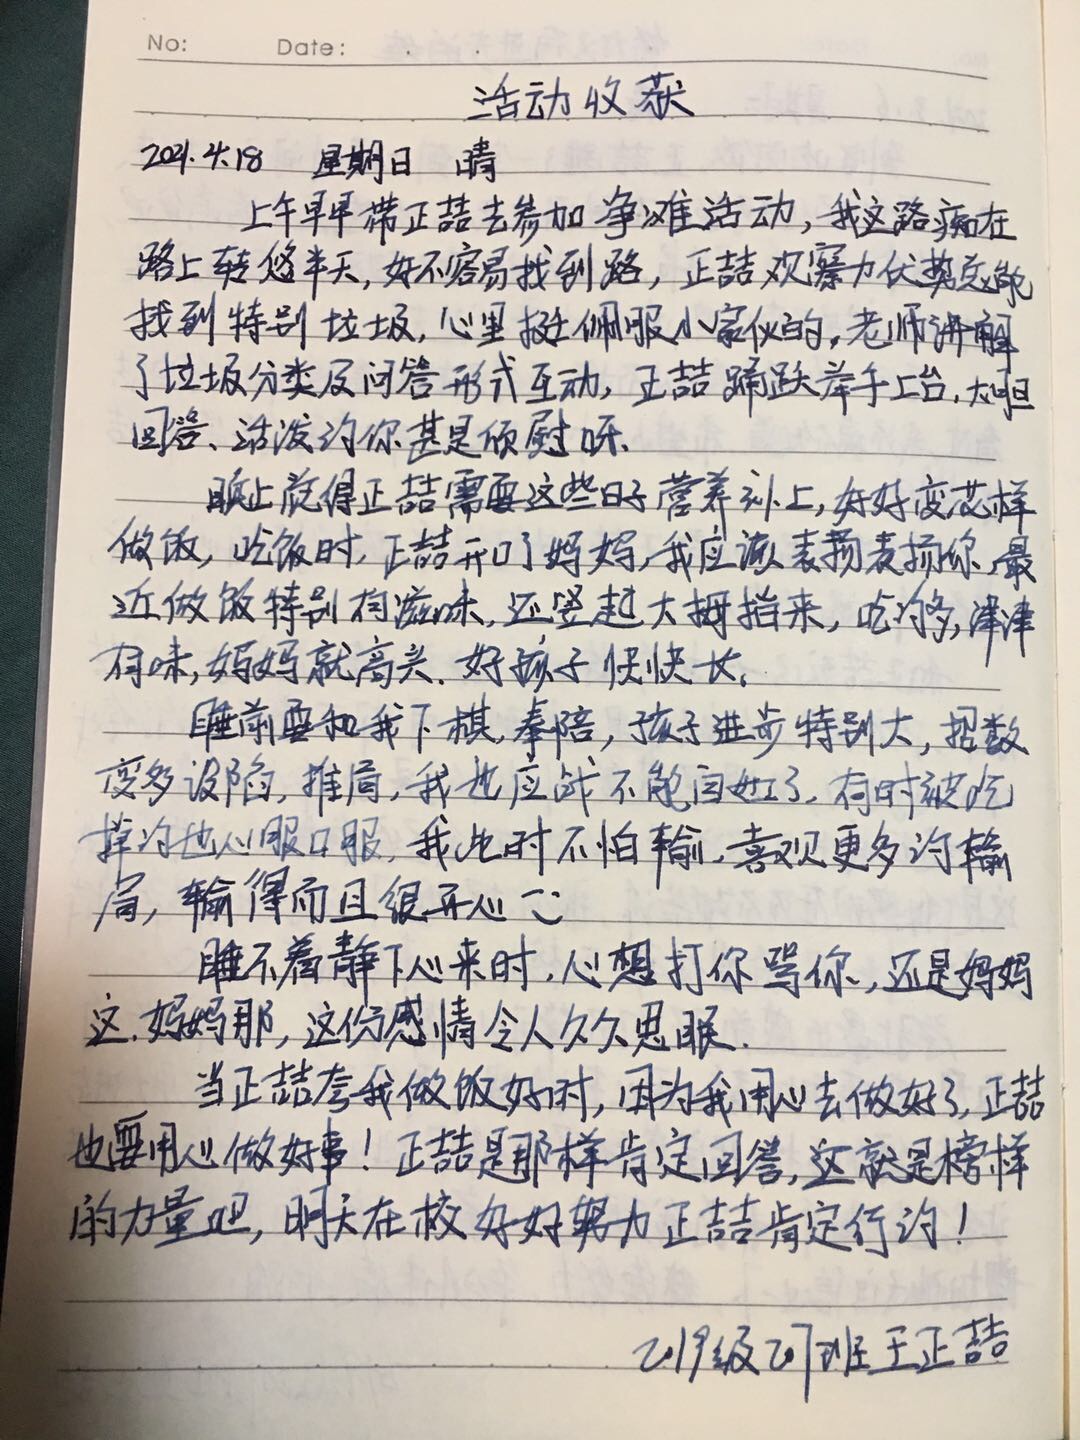 No:        Date:
活动收获
2021.4.18 星期日 晴
上午早早带正喆去参加争滩活动，我这路痴在
路上转悠半天，好不容易找到路，正喆观察力优势总能
找到特别垃圾，心里挺佩服小家伙的。老师讲解
了垃圾分类及问答形式互动，正喆踊跃举手上台，大胆
回答、活泼的你甚是欣慰呀。
晚上觉得正喆需要这些日子营养补上，好好变花样
做饭，吃饭时，正喆开口了妈妈，我应该表扬表扬你，最
近做饭特别有滋味，还竖起大拇指来，吃的多，津津
有味，妈妈就高兴。好孩子快快长。
睡前要和我下棋，奉陪，孩子进步特别大，招数
变多设陷，推局，我也应战不能自如了。有时被吃
掉的也心服口服。我此时不怕输，喜观更多的输
局，输得而且很开心
睡不着静下心来时，心想打你骂你，还是妈妈
这，妈妈那，这份感情令人久久思眠.
当正喆夸我做饭好时，因为我用心去做好了，正喆
也要用心做好事！正喆是那样肯定回答，这就是榜样
的力量吧，明天在校好好努力正喆肯定行的！
2019级207班王正喆